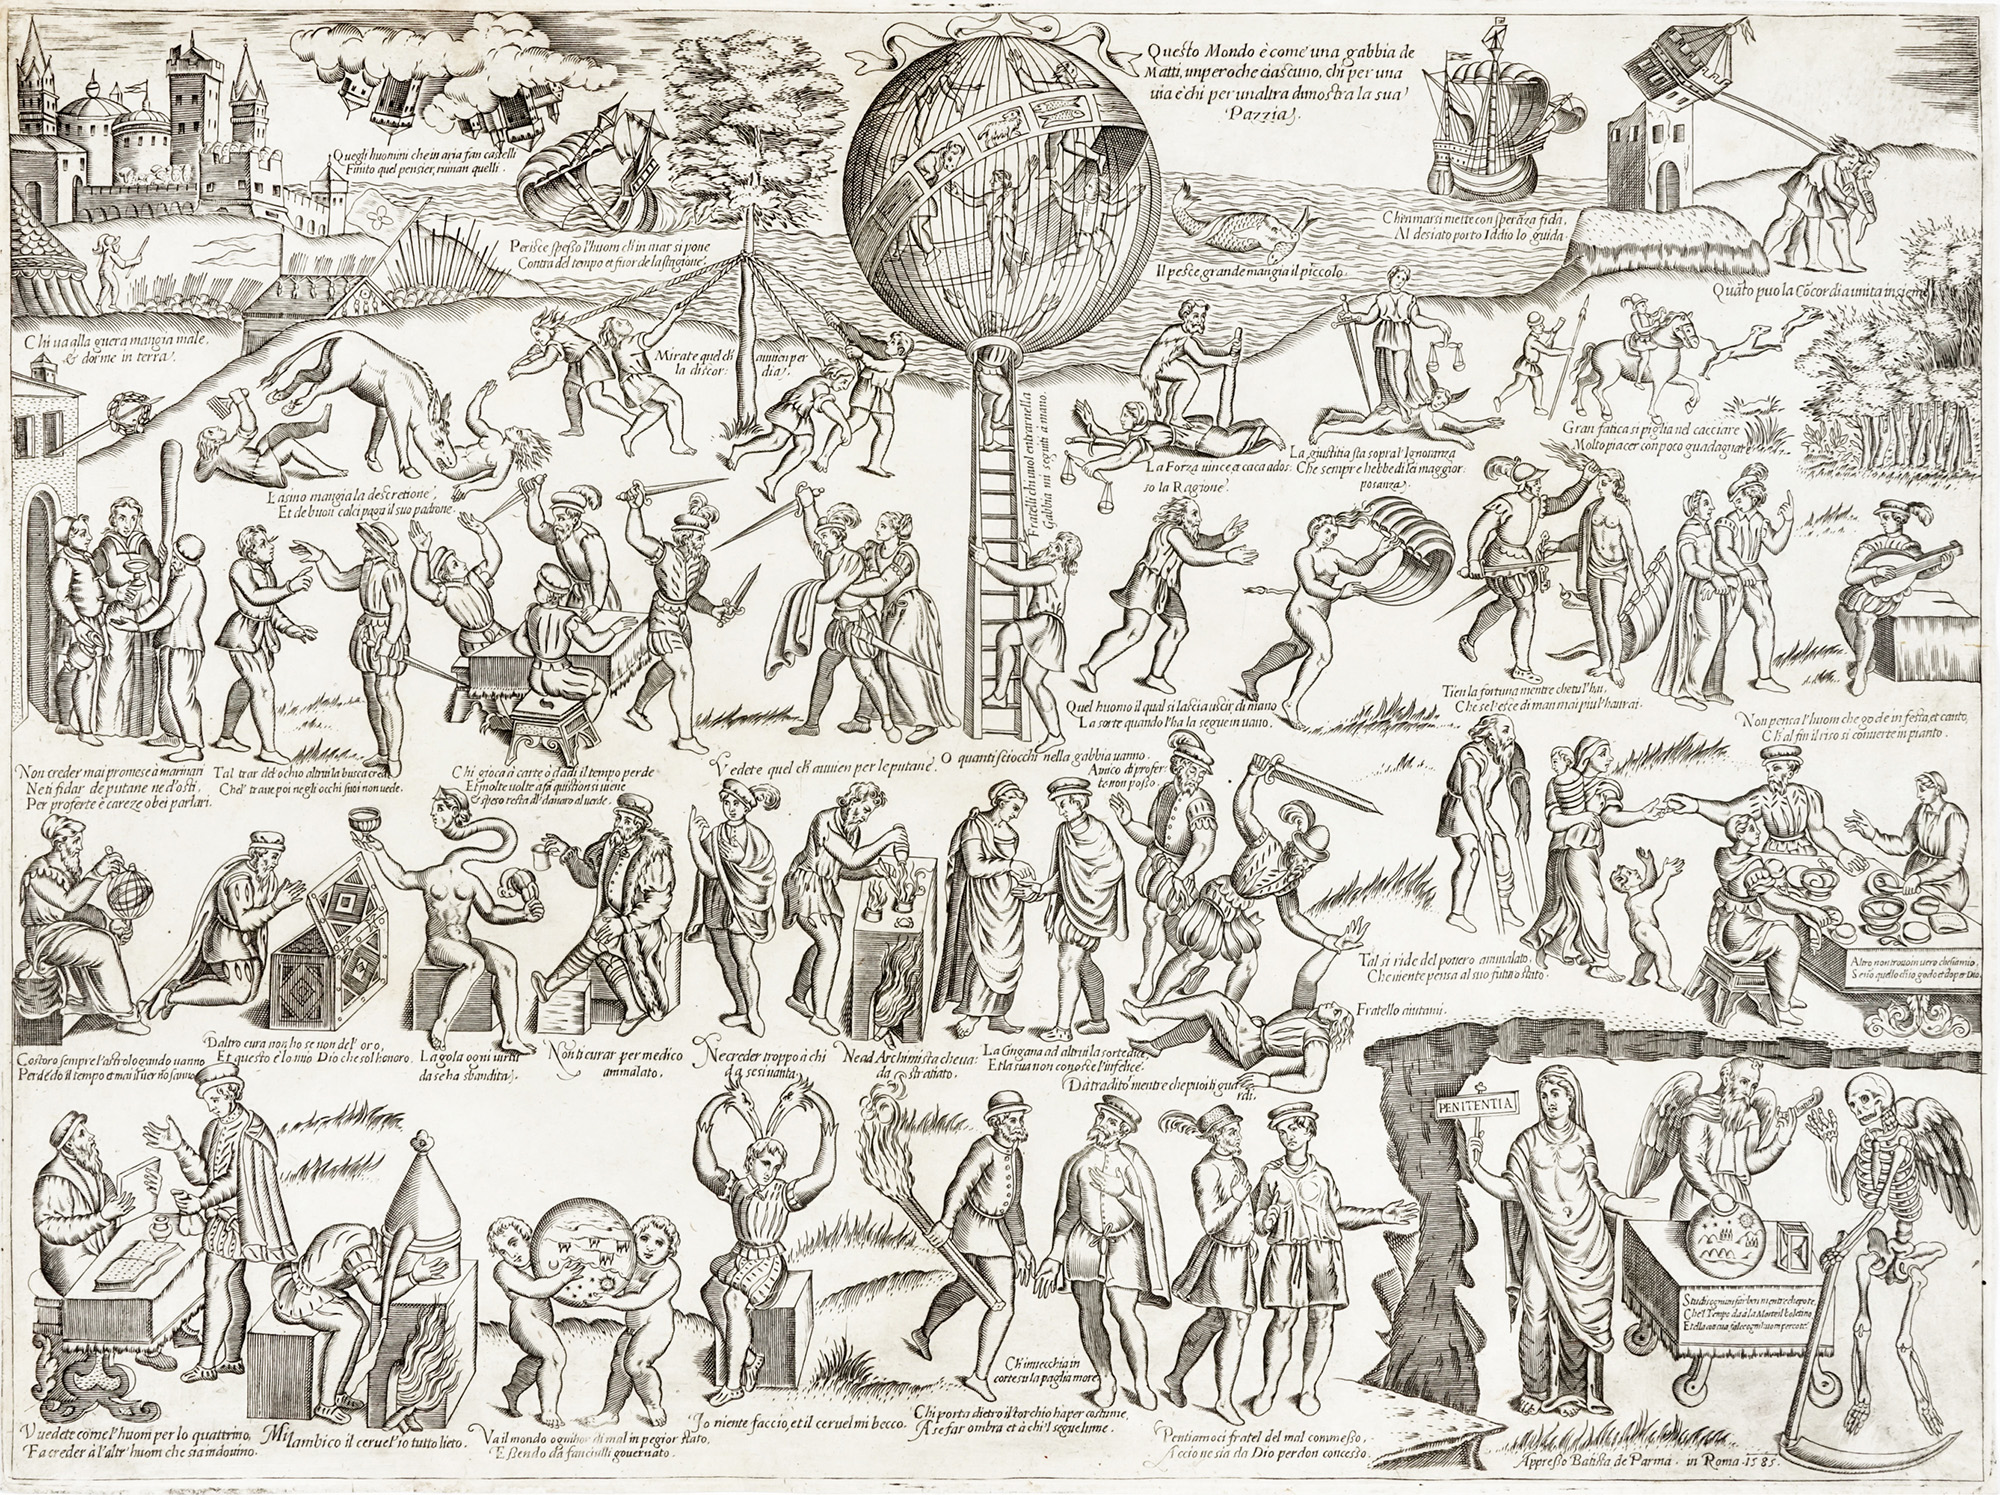 Questo Mondo è come una gabbia de
Matti, imperoche ciascuno, chi per una
uia e chi per unaltra dimostra la sua
Pazzia.
Quegli huomini che in aria fan castelli
Finito quel pensier, ruinan quelli.
Perisce spesso l'huom ch'in mar si pone
Contra del tempo et fuor de la stagione.
Il pesce grande mangia il piccolo.
Chi in mar si mette con speraza fida,
Al desiato porto Iddio lo guida.
Quāto puo la Cōcordia unita insieme
Chi ua alla guera mangia male,
& dorme in terra.
Mirate quel ch'auuien per
la discordia.
Fratelli chi uuol entrar nella
Gabbia mi seguiti à mano.
La Forza uince et caca ados:
so la Ragione.
La giustitia sta sopra l'Ignoranza
Che sempre hebbe di lei maggior
posanza.
Gran fatica si piglia nel cacciare
Molto piacer con poco guadagnare
L'asino mangia la descretione,
Et de buon calci paga il suo padrone.
Non creder mai promese à marinari
Ne ti fidar de putane ne d'osti,
Per proferte è careze o bei parlari.
Tal trar del ochio altrui la busca crede
Chel traue poi negli occhi suoi non uede.
Chi gioca à carte o dadi il tempo perde
Et molte uolte a far quistion si uiene
& speso resta di danaro al uerde.
Vedete quel ch'auuien per le putane.
O quanti sciocchi nella gabbia uanno.
Quel huomo il qual si lascia uscir di mano
La sorte quando l'ha la segue in uano.
Tien la fortuna mentre che tu l'hai,
Che se l'esce di man mai piu l'haurai.
Non pensa l'huom che gode in festa, et canto,
Ch'al fin il riso si conuerte in pianto.
Costoro sempre l'astrologando uanno
Perdēdo il tempo et mai il uer nō sanno
D'altro cura non ho se non del' oro,
Et questo è lo mio Dio che sol honoro.
La gola ogni uirtu
da se ha sbandita.
Non ti curar per medico
ammalato.
Ne creder troppo à chi
da se si uanta.
Ne ad Archimista che ua
da stratiato.
La Cingana ad altrui la sorte dice,
Et la sua non conosce l'infelice.
Amico di profer:
te non posso.
Da tradito mentre che puoi ti guar
rdi.
Fratello aiutami.
Tal si ride del pouero ammalato,
Che niente pensa al suo futuro stato.
Altro non trouo in uero che sia mio,
Se nō quello ch'io godo et do per Dio.
Vuedete come l'huom per lo quattrino,
Fa creder à l'altr' huom che sia indouino.
Mi lambico il ceruel' io tutto lieto.
Va il mondo ognihor di mal in pegior stato,
Essendo da fanciulli gouernato.
Io niente faccio, et il ceruel mi becco.
Ch'inuecchia in
corte su la paglia more.
Chi porta dietro il torchio ha per costume,
A se far ombra et à chi'l segue lume.
Pentiamoci fratel del mal commesso,
Accio ne sia da Dio perdon concesso.
PENITENTIA
Studi ognun far ben mentre che pote,
Che'l Tempo da à la Morte il boletino
Et ella con sua falce ogni huom percote.
Appresso Batista de Parma. in Roma. 1585.